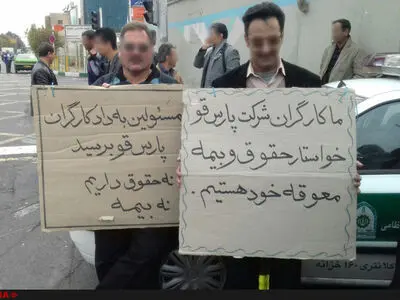 مسئولین به داد کارگران
پارس قو برسید
نه حقوقی داریم
نه بیمه
ما کارگران شرکت پارس قو
خواستار حقوق و بیمه
معوقه خود هستیم.
کلانتری ۱۶۰ خزانه